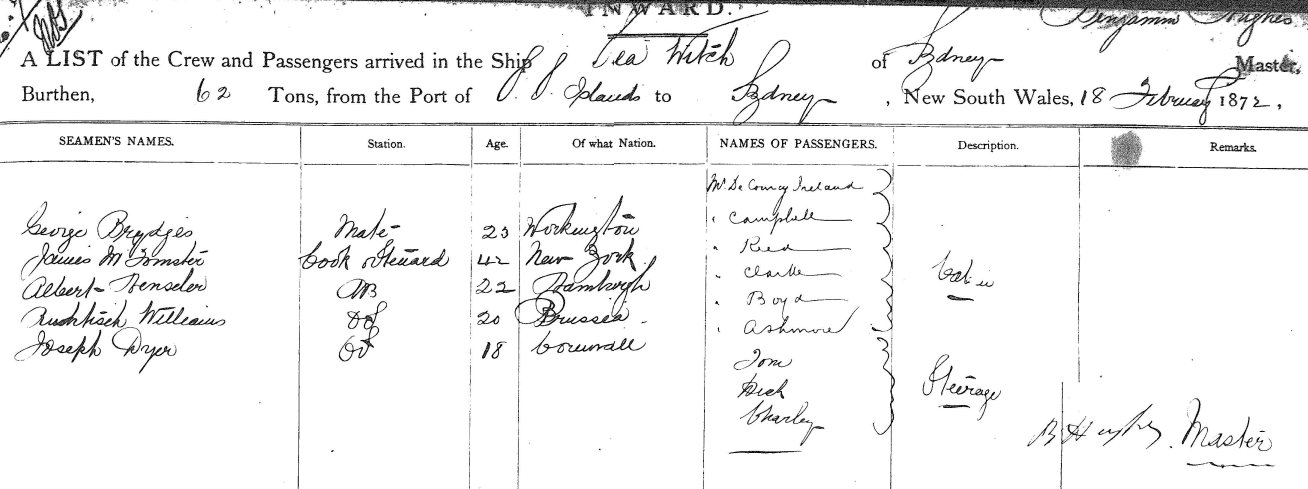 INWARD.
Benjamin Hughes
A LIST of the Crew and Passengers arrived in the Ship Sea Witch of Sydney Master,
Burthen, 62 Tons, from the Port of S. S. Islands to Sydney, New South Wales, 18 February 1872,
SEAMEN'S NAMES. Station. Age. Of what Nation. NAMES OF PASSENGERS. Description. Remarks.
Mr De Courcy Ireland
" Campbell
George Brydges Mate 23 Workington
" Reed
James M Comster Cook & Steward 42 New York
" Clarke Cabin
Albert Henseler AB 22 Hamburgh
" Boyd
Williams 20 Prussia
" Ashmore
Joseph Dyer 18 Cornwall
Tom
Dick Steerage
Charley
B Hughes Master